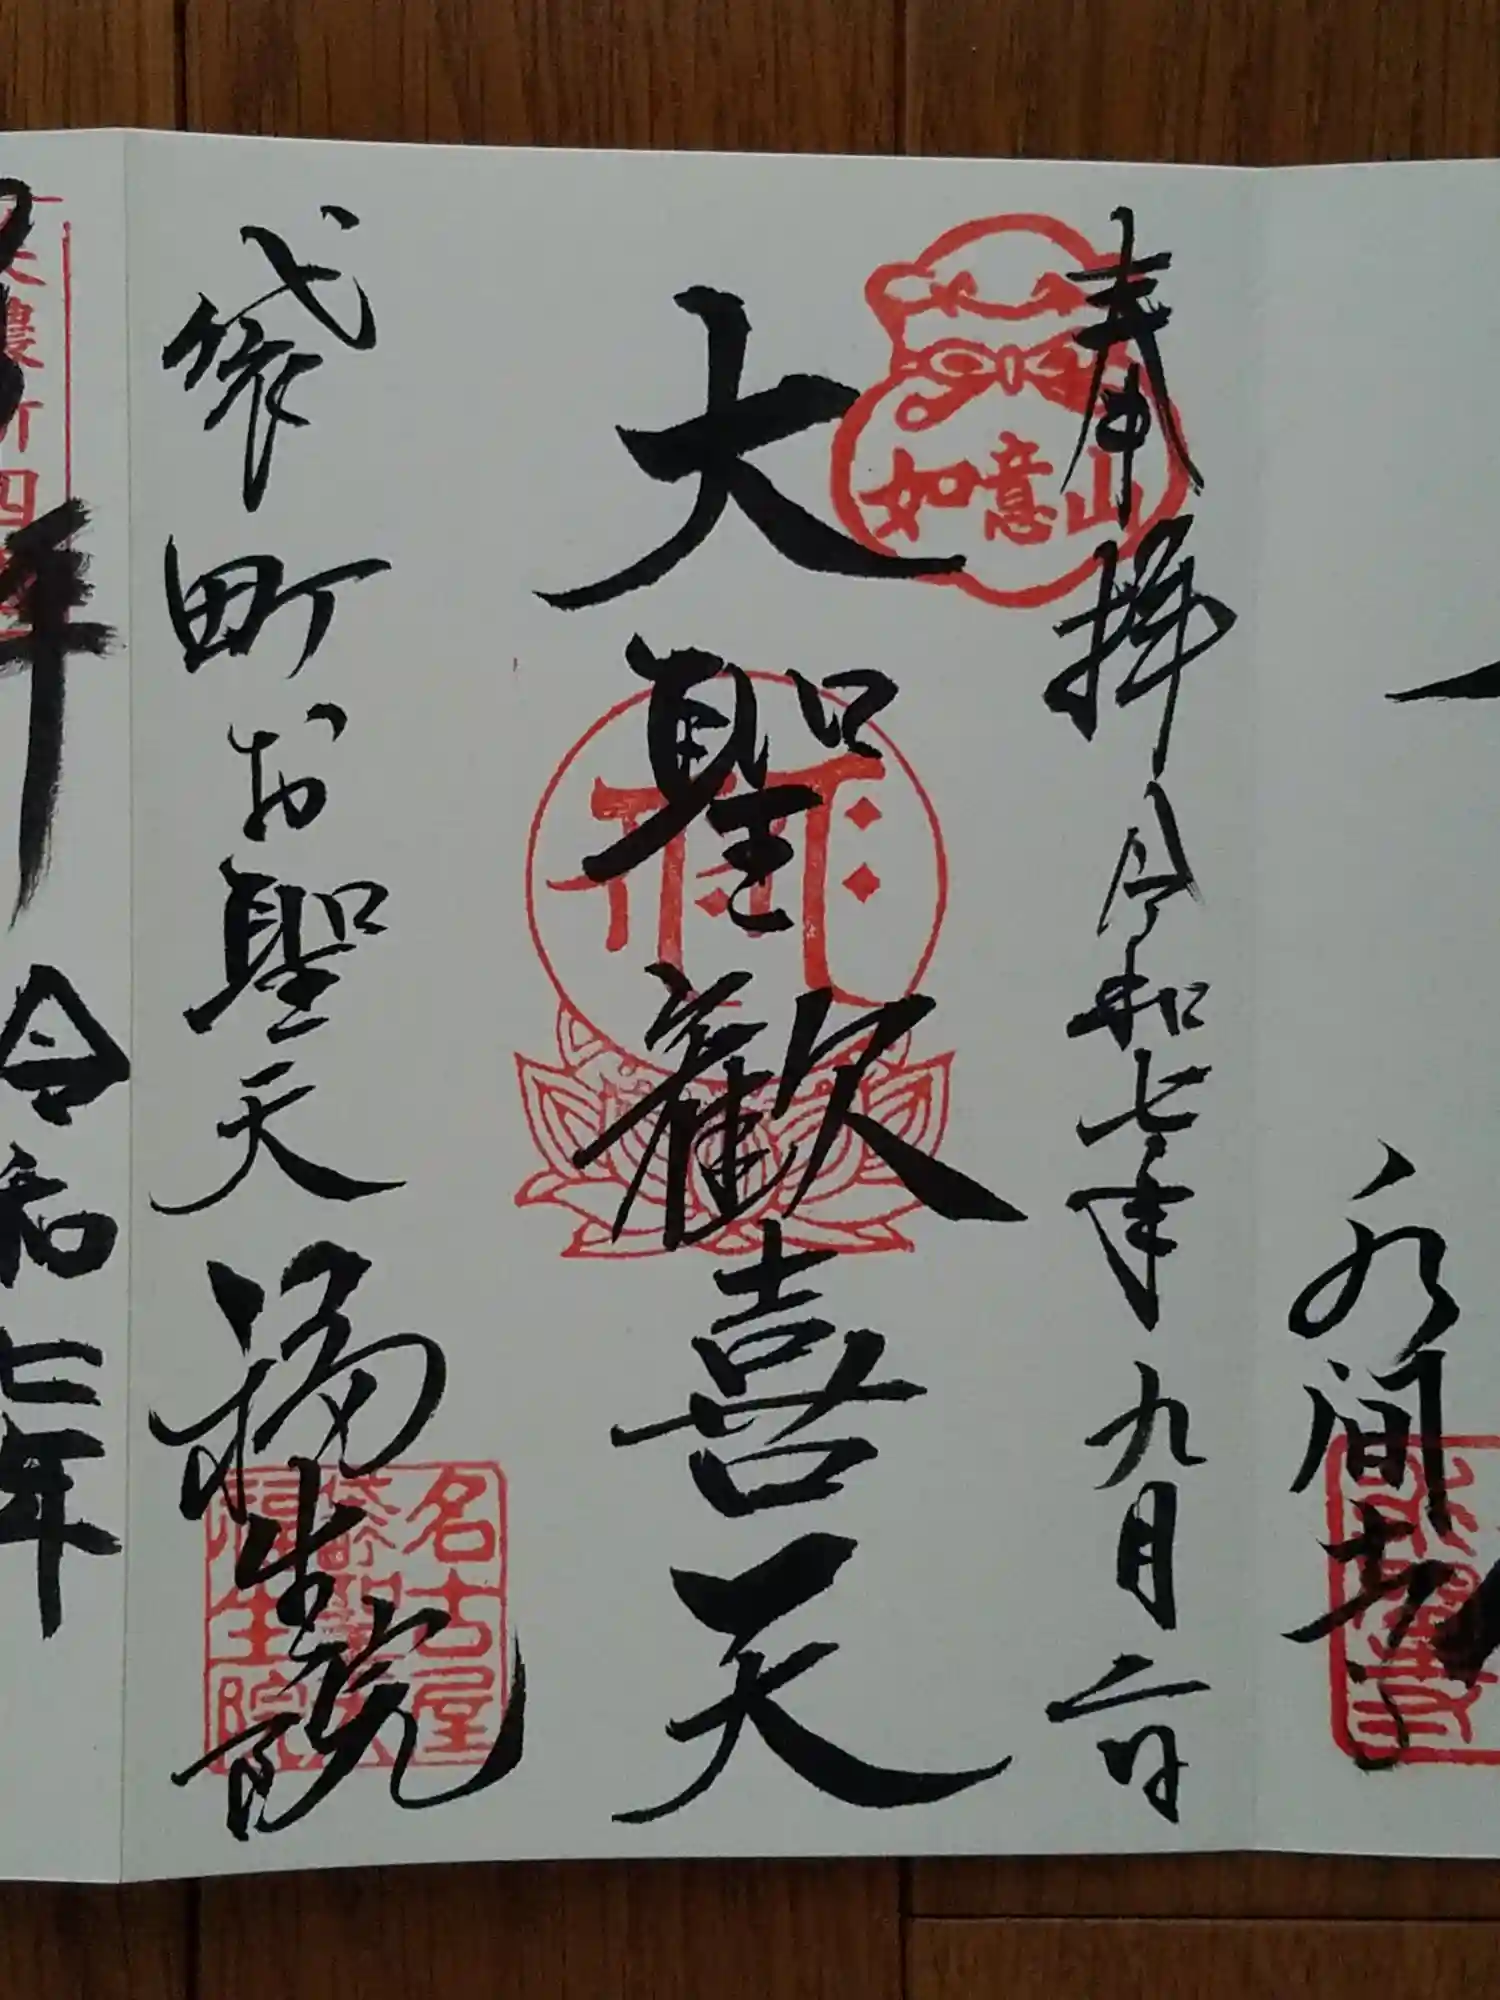 永間寺
奉拝 令和七年九月二日
如意山
大聖歓喜天
袋町お聖天 福生院
名古屋
福生院
令和七年